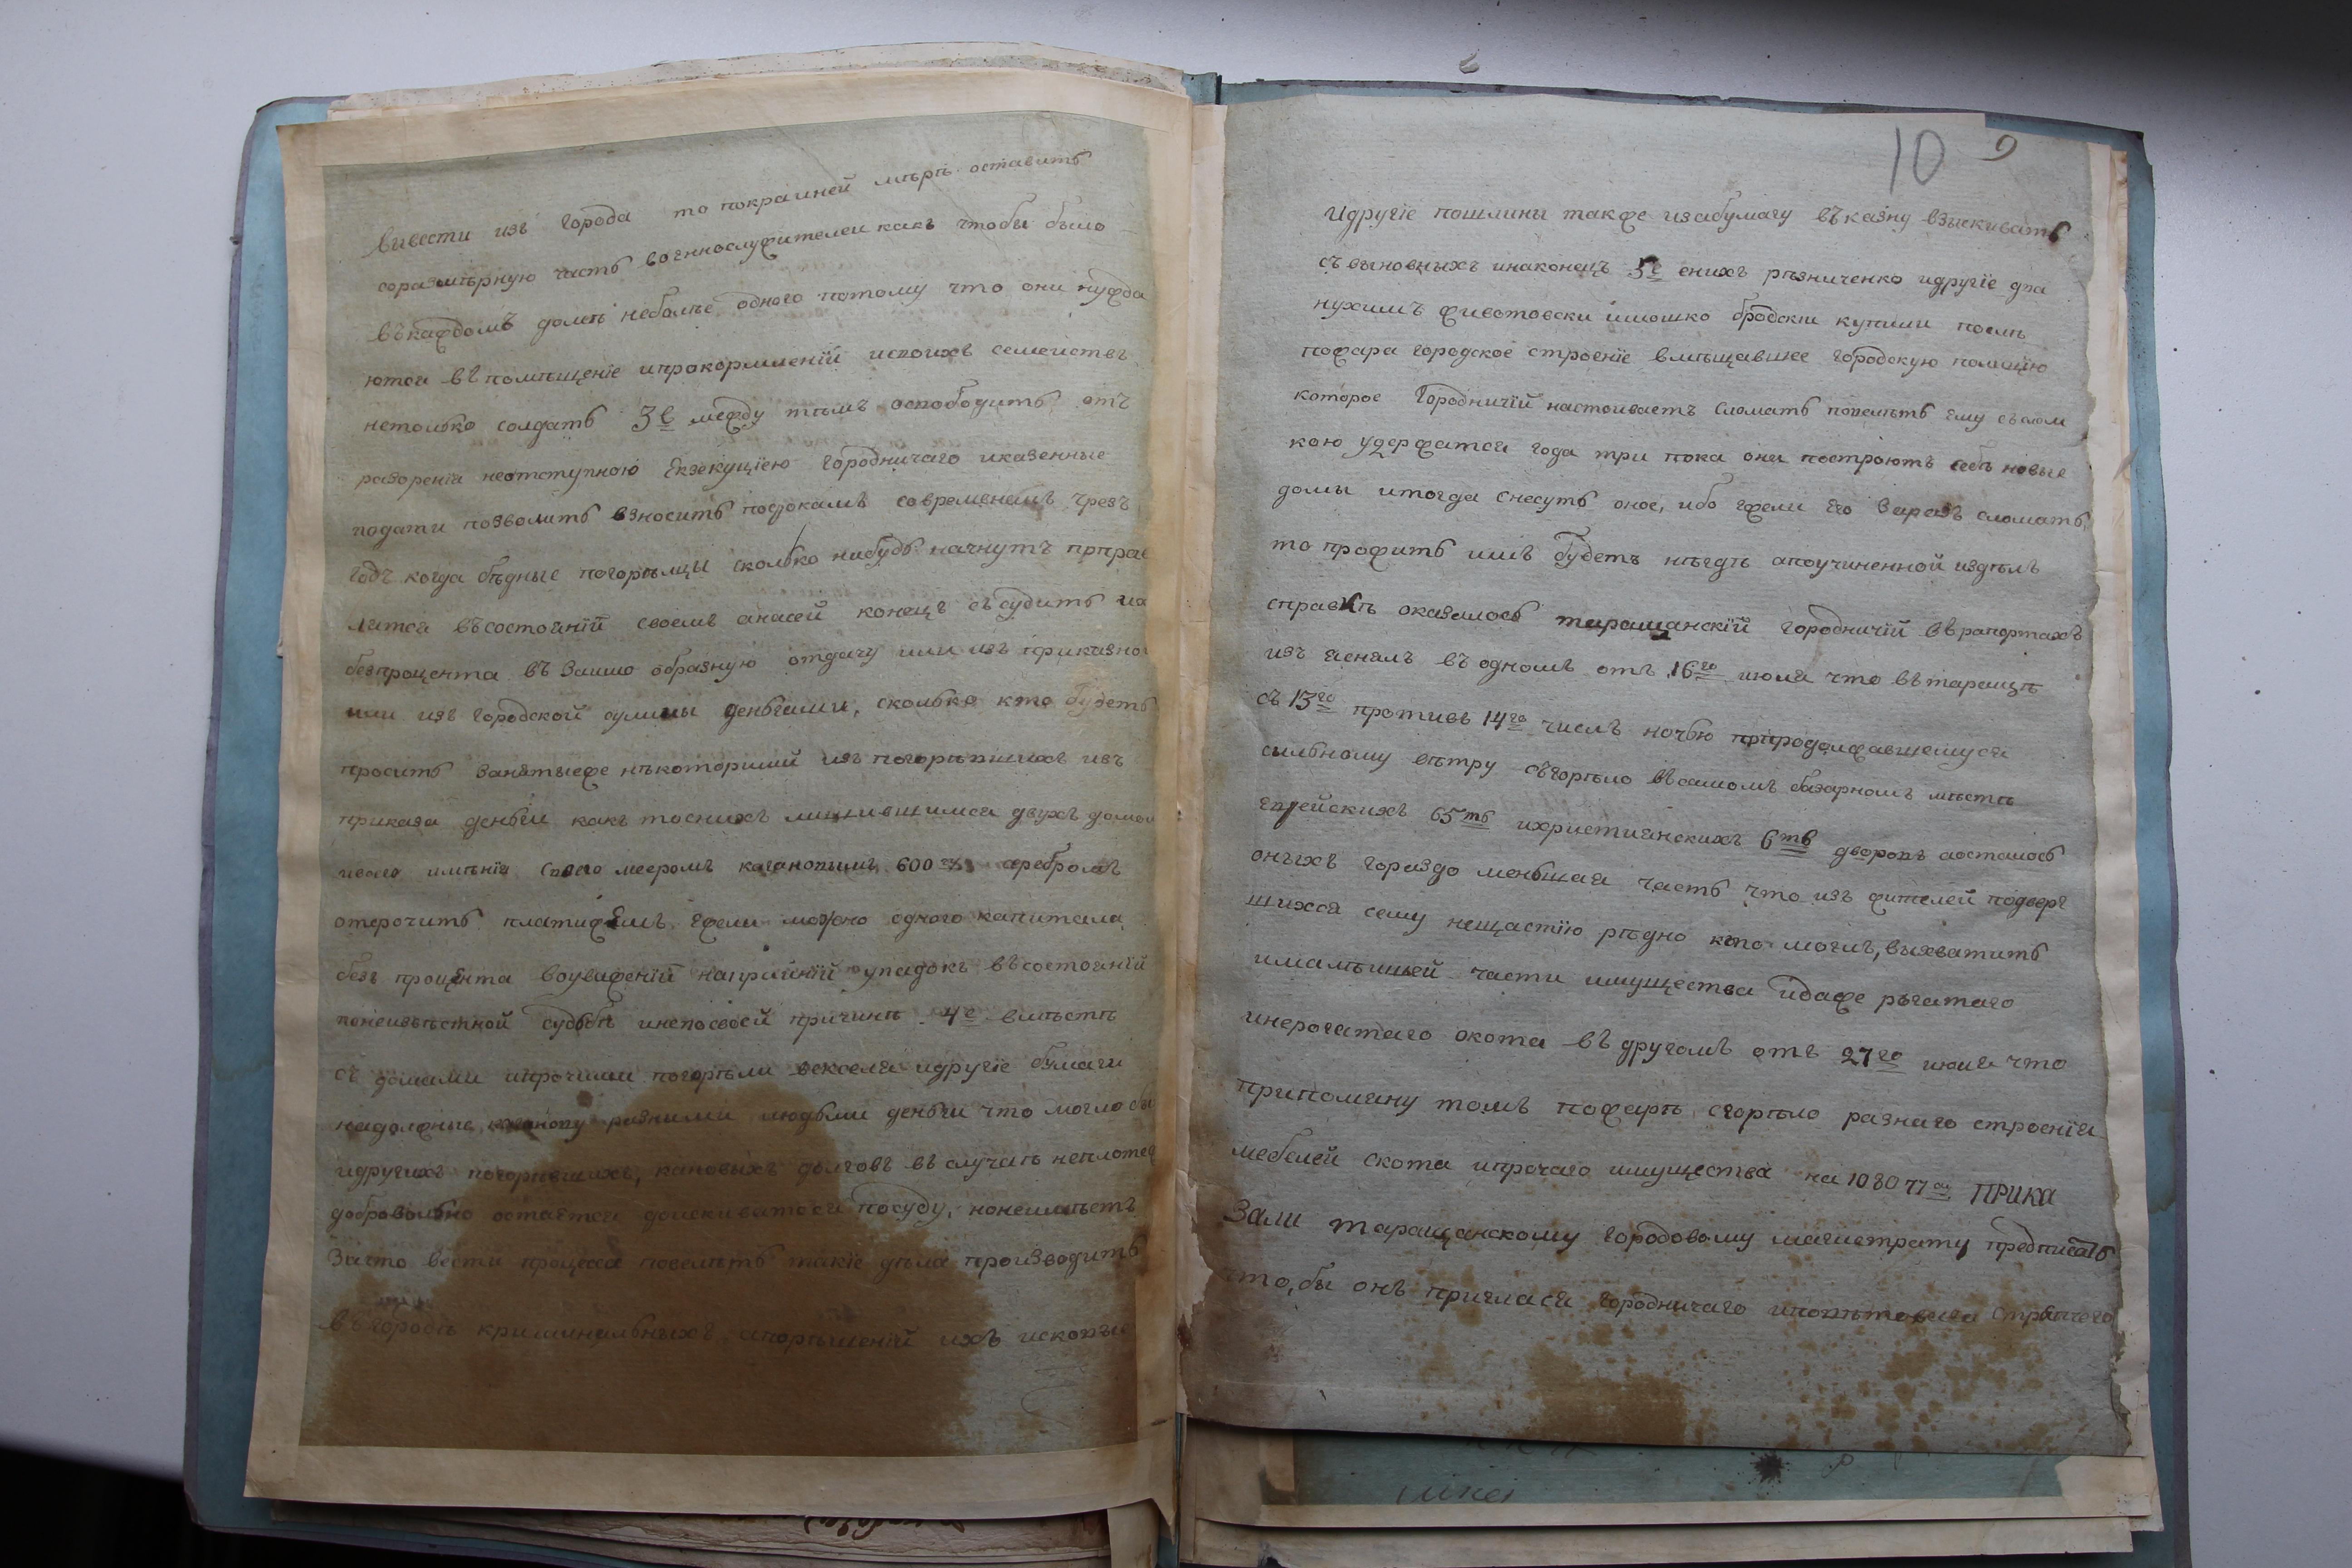 вивести изъ города то покрайней мѣрѣ оставить
соразмѣрную часть военнослужителей какъ чтобы было
въкаждомъ домѣ неболѣе одного потому что они нужда
ются въ помѣщеніе ипрокормленій исвоихъ семействъ
нетолько солдатъ 3е между тѣмъ освободить отъ
разоренія неотступною Екзекуціею городничаго иказенные
подати позволить взносить посрокамъ современемъ чрезъ
годъ когда бѣдные погорѣлцы сколько нибудь начнутъ пнправ
лятся въсостояній своемъ анасей конецъ съсудить их
безпроцента въ Заимо образную отдачу или изъ приказной
или изъ городской сумы деньгами, сколько кто будетъ
просить Занятыеже нѣкоторими изъ погорѣвшихъ изъ
приказа деньги какъ тоснихъ лишившимся двухъ домов
ивсего имѣнія своего меером кагановимъ 600 серебромъ
отерочить платижЕмъ Ежели можно одного капитала
безъ процЕнта воуваженій накрайній упадокъ въсостояній
понеизвѣстной судьбѣ инепосвоей причинѣ 4е вмѣстѣ
съ домами ипрочими погорѣли векселя идругіе бумаги
надолжные разними людьми деньги что могло бы
идругихъ погорѣвшихъ, каковыхъ долговъ въ случаѣ неплотеж
добровольно остается доискиватся посуду, нонеимѣетъ
Зачто вести процеса повелѣть такіе дѣла производить
въгородѣ криминальныхъ ипорѣшеній ихъ исковые
10 9
Идругіе пошлины также изабумагу въказну взыскивать
съ виновныхъ инаконецъ 5е снихъ рѣзниченко идругіе два
нухимъ животовски імошко бродски купили послѣ
пожара городское строеніе вмѣщавшее городскую полицію
которое Городничій настоиваетъ Сломать повелѣть Ему съвлом
кою удержатся года три пока они построютъ себѣ новые
домы итогда снесутъ оное, ибо Ежели Его Заразъ сломать,
то прожить имъ будетъ нѣгдѣ апоучиненной издѣлъ
справкѣ оказалось таращанскій городничій въ рапортахъ
изъ яснялъ въ одномъ отъ 16го июля что въ таращѣ
съ 13го противъ 14го числъ ночью припродолжавшемуся
сильному вѣтру съгорѣло въсамомъ базарномъ мѣстѣ
еврейскихъ 65ть ихристианскихъ 6ть дворовъ аосталось
онъхъ гораздо меньшая часть что изъ жителей подверг
шихся сему нещастію рѣдко кто могъ, выхватить
ималѣишей части имущества идаже рѣгатаго
инерогатаго скота въ другомъ отъ 27го июля что
приполяну томъ пожарѣ сгорѣло разнаго строенія
мебелей скота ипрочаго имущества на 108077 ПРИКА
Зали таращанскому городовому магистрату предписать
что, бы онъ пригласи городничаго иповѣтоваго стряпчего